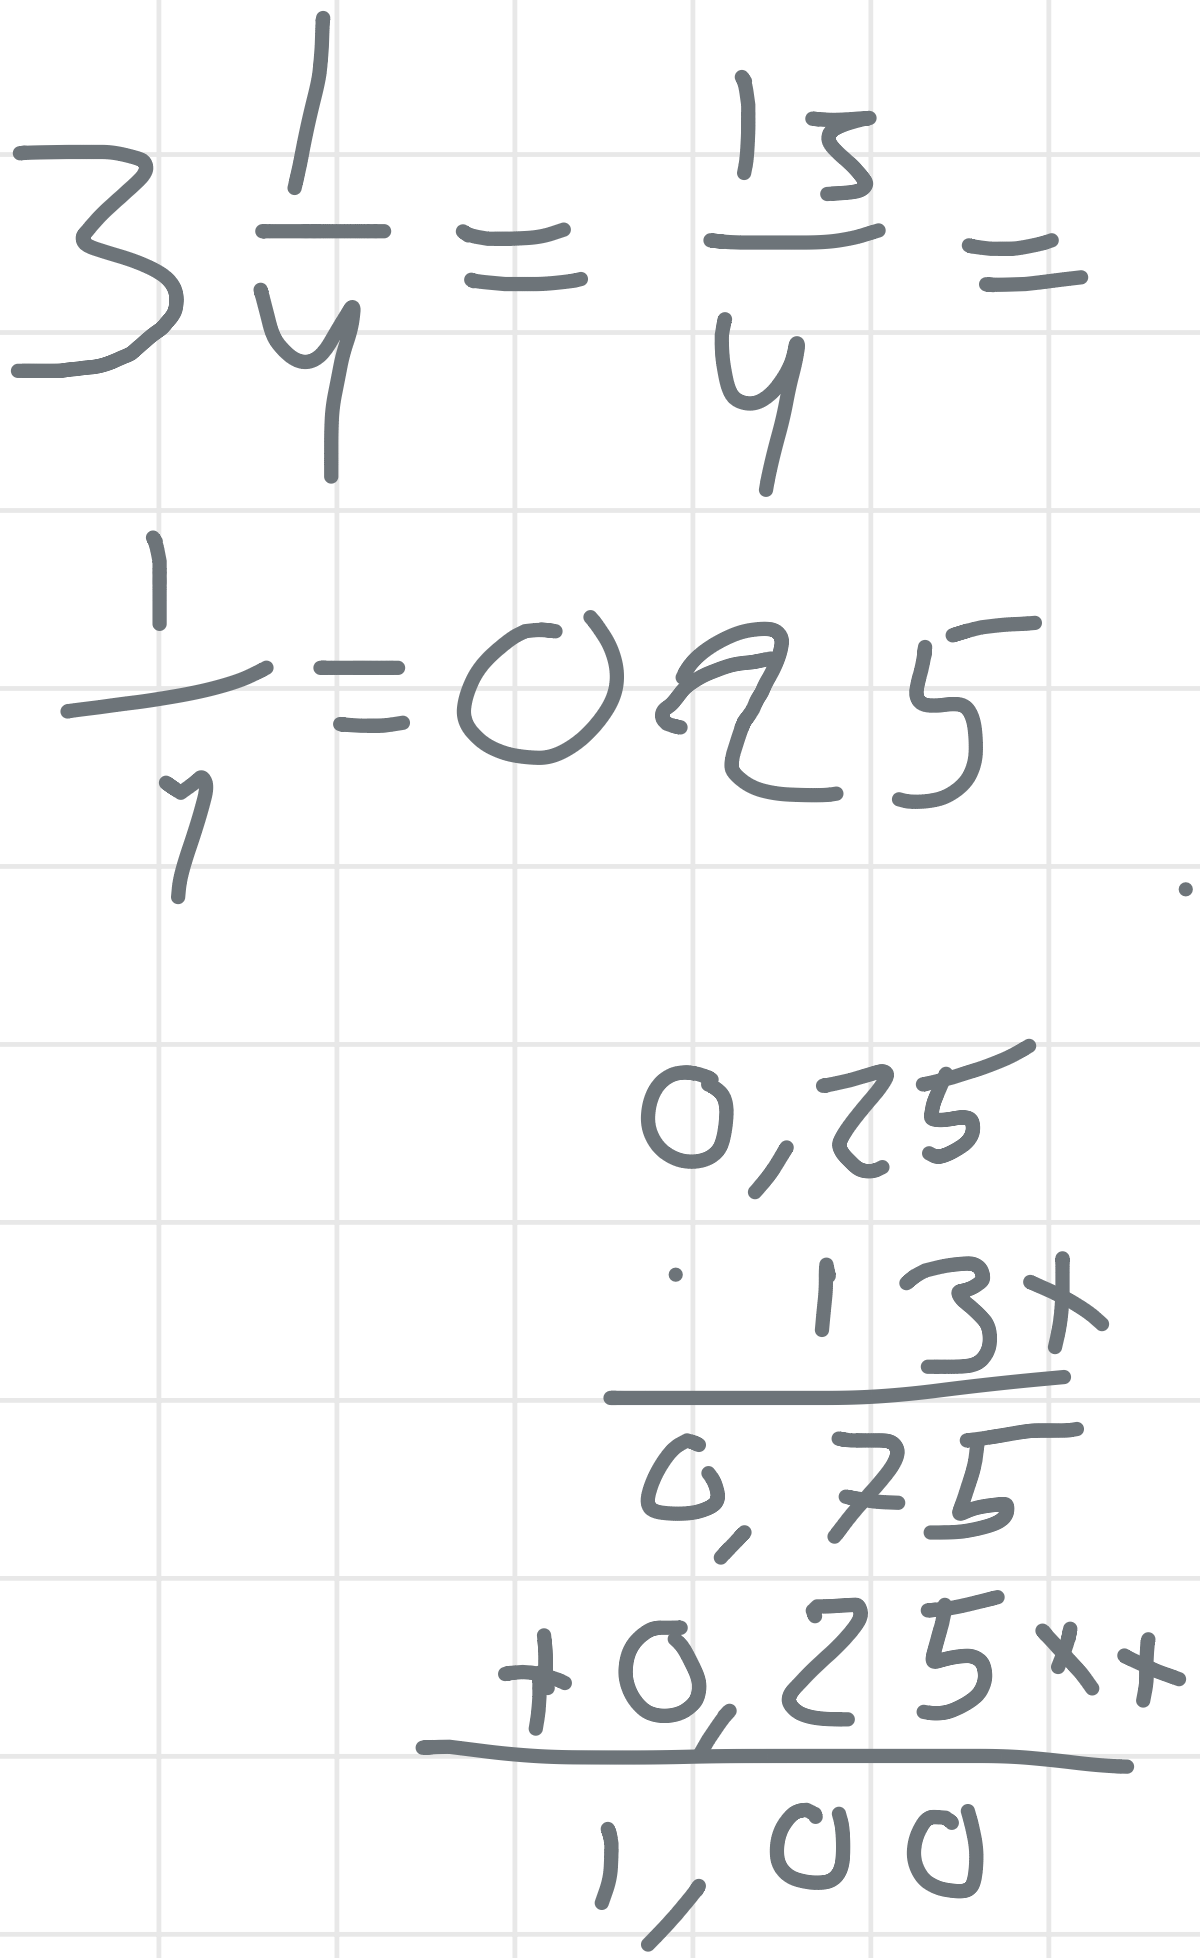 3 1/4 = 13/4 =
1/4 = 0 25
0,25
13 x
0,75
+ 0,25 x x
1,00